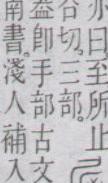 亦曰至所止
合切三部。
葢卽手部古文
南書。淺人補入